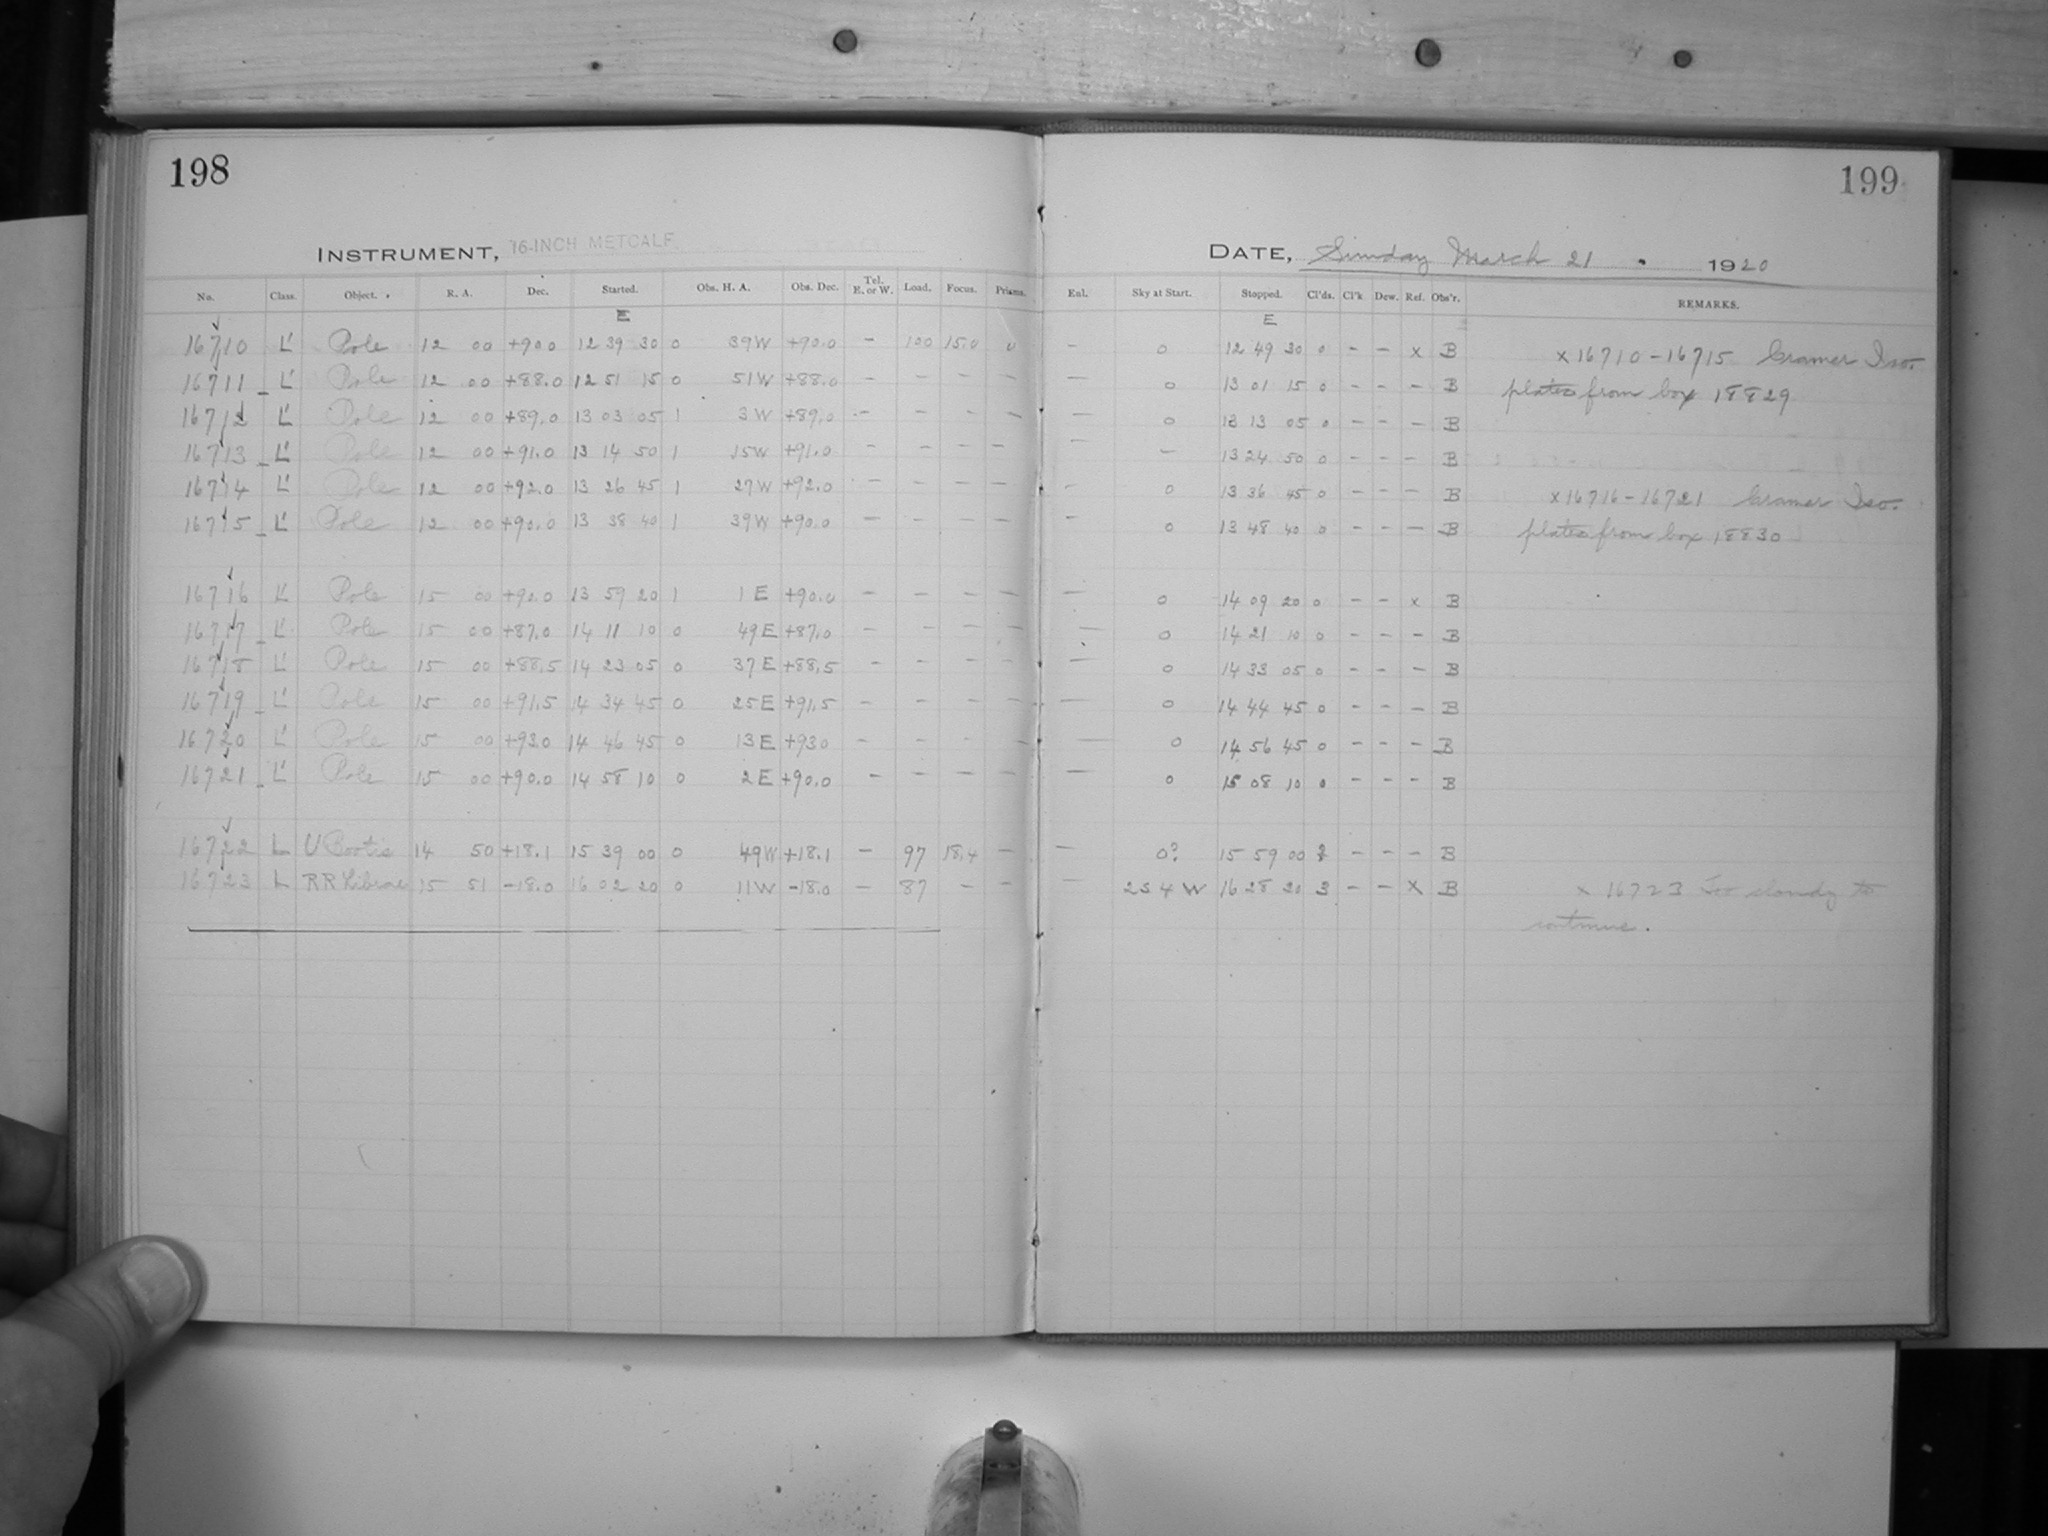 198
INSTRUMENT, 16-INCH METCALF
No. Class. Object. R. A. Dec. Started. Obs. H. A. Obs. Dec. Tel. E. or W. Load. Focus. Prisms.
E
16710 L' Pole 12 00 +90.0 12 39 30 0 39W +90.0 - 100 15.0 0
16711 L' Pole 12 00 +88.0 12 51 15 0 51W +88.0 - - - -
16712 L' Pole 12 00 +89.0 13 03 05 1 3W +89.0 - - - -
16713 L' Pole 12 00 +91.0 13 14 50 1 15W +91.0 - - - -
16714 L' Pole 12 00 +92.0 13 26 45 1 27W +92.0 - - - -
16715 L' Pole 12 00 +90.0 13 38 40 1 39W +90.0 - - - -
16716 L' Pole 15 00 +90.0 13 59 20 1 1E +90.0 - - - -
16717 L' Pole 15 00 +87.0 14 11 10 0 49E +87.0 - - - -
16718 L' Pole 15 00 +88.5 14 23 05 0 37E +88.5 - - - -
16719 L' Pole 15 00 +91.5 14 34 45 0 25E +91.5 - - - -
16720 L' Pole 15 00 +93.0 14 46 45 0 13E +93.0 - - - -
16721 L' Pole 15 00 +90.0 14 58 10 0 2E +90.0 - - - -
16722 L U Bootis 14 50 +18.1 15 39 00 0 49W +18.1 - 97 18.4 -
16723 L RR Librae 15 51 -18.0 16 02 20 0 11W -18.0 - 87 - -
199
DATE, Sunday March 21 1920
Eul. Sky at Start. Stopped. Cl'ds. Cl'k Dew. Ref. Obs'r. REMARKS.
E
- 0 12 49 30 0 - - x B x 16710-16715 Cramer Iso.
- 0 13 01 15 0 - - - B plates from box 18829
- 0 13 13 05 0 - - - B
- - 13 24 50 0 - - - B
- 0 13 36 45 0 - - - B x 16716-16721 Cramer Iso.
- 0 13 48 40 0 - - - B plates from box 18830
- 0 14 09 20 0 - - x B
- 0 14 21 10 0 - - - B
- 0 14 33 05 0 - - - B
- 0 14 44 45 0 - - - B
- 0 14 56 45 0 - - - B
- 0 15 08 10 0 - - - B
- 0? 15 59 00 - - - B
- 2S4W 16 28 20 3 - - X B x 16723 Too cloudy to
continue.